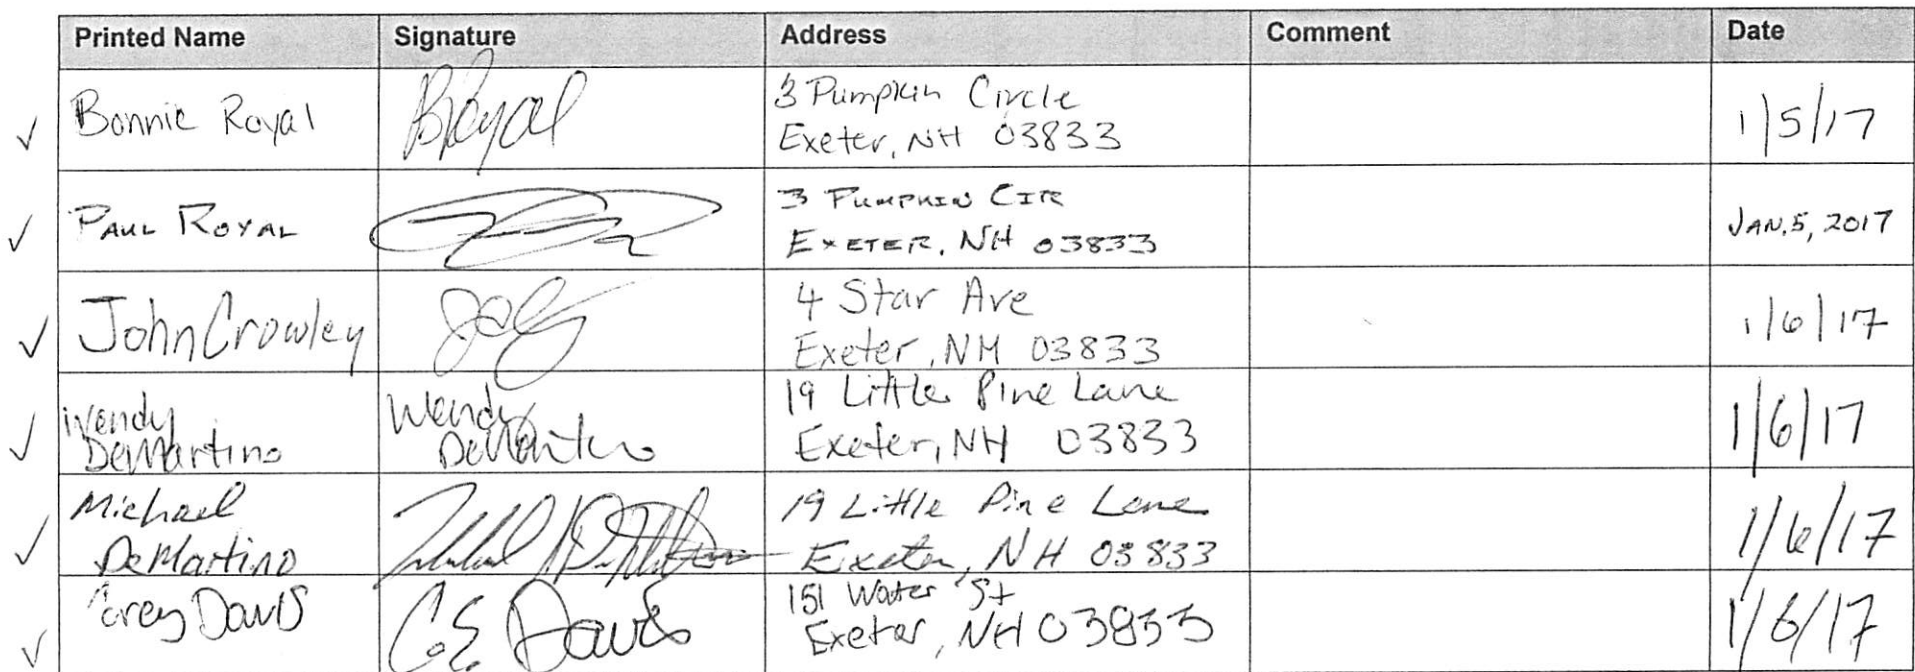 Printed Name Signature Address Comment Date
Bonnie Royal BRoyal 3 Pumpkin Circle
Exeter, NH 03833 1/5/17
PAUL ROYAL 3 PUMPKIN CIR
EXETER, NH 03833 JAN. 5, 2017
John Crowley 4 Star Ave
Exeter, NH 03833 1/6/17
Wendy
DeMartino Wendy
DeMartino 19 Little Pine Lane
Exeter, NH 03833 1/6/17
Michael
DeMartino 19 Little Pine Lane
Exeter, NH 03833 1/6/17
Corey Davis C.E. Davis 151 Water St
Exeter, NH 03833 1/6/17